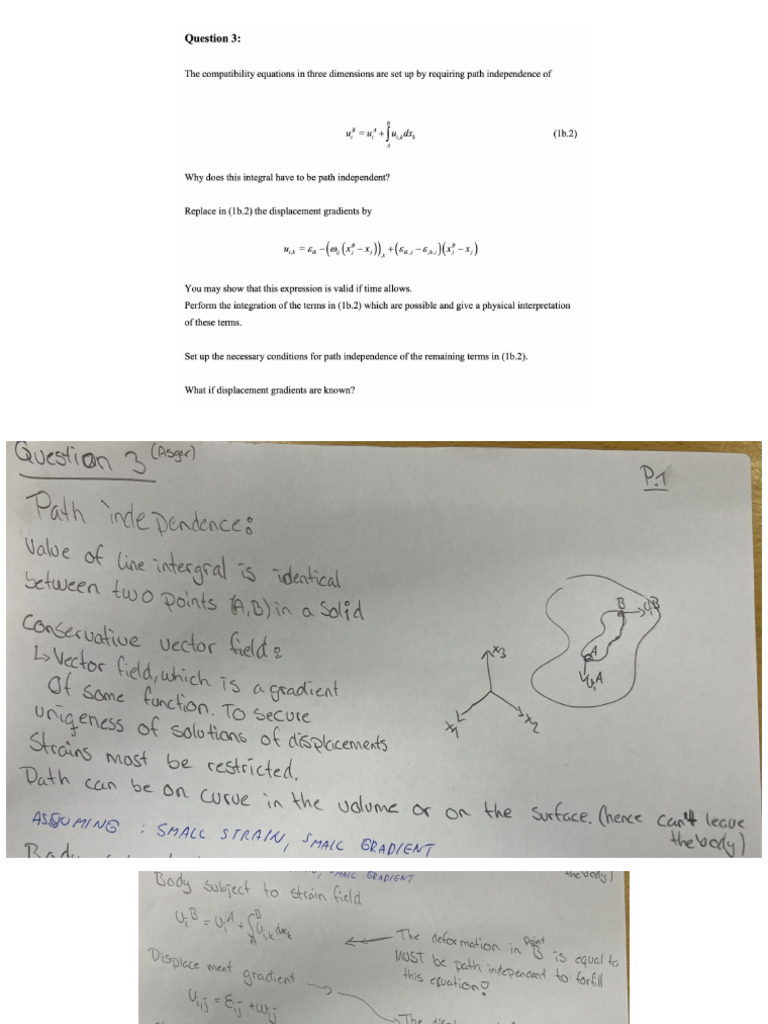 Question 3:
The compatibility equations in three dimensions are set up by requiring path independence of
u_i^B = u_i^A + ∫_A^B u_{i,k} dx_k (1b.2)
Why does this integral have to be path independent?
Replace in (1b.2) the displacement gradients by
u_{i,k} = ε_{ik} − (ω_{ij}(x_j^B − x_j))_{,k} + (ε_{ik,j} − ε_{jk,i})(x_j^B − x_j)
You may show that this expression is valid if time allows.
Perform the integration of the terms in (1b.2) which are possible and give a physical interpretation
of these terms.
Set up the necessary conditions for path independence of the remaining terms in (1b.2).
What if displacement gradients are known?
Question 3 (Asger)
P.1
Path independence:
Value of line intergral is identical
between two points (A,B) in a solid
Conservative vector field:
↳ Vector field, which is a gradient
Of some function. To secure
uniqeness of solutions of displacements
Strains most be restricted.
Path can be on curve in the volume or on the surface. (hence can't leave
the body)
x3
x1
x2
B
U_iB
A
U_iA
ASSUMING : SMALL STRAIN, SMALL GRADIENT
SMALL GRADIENT
the body)
Body subject to strain field
U_i^B = U_i^A + ∫_A^B U_{i,k} dx_k
← The deformation in Point B is equal to
MUST be path independent to forfill
this equation!
Displace ment gradient
U_{i,j} = ε_{ij} + ω_{ij}
The